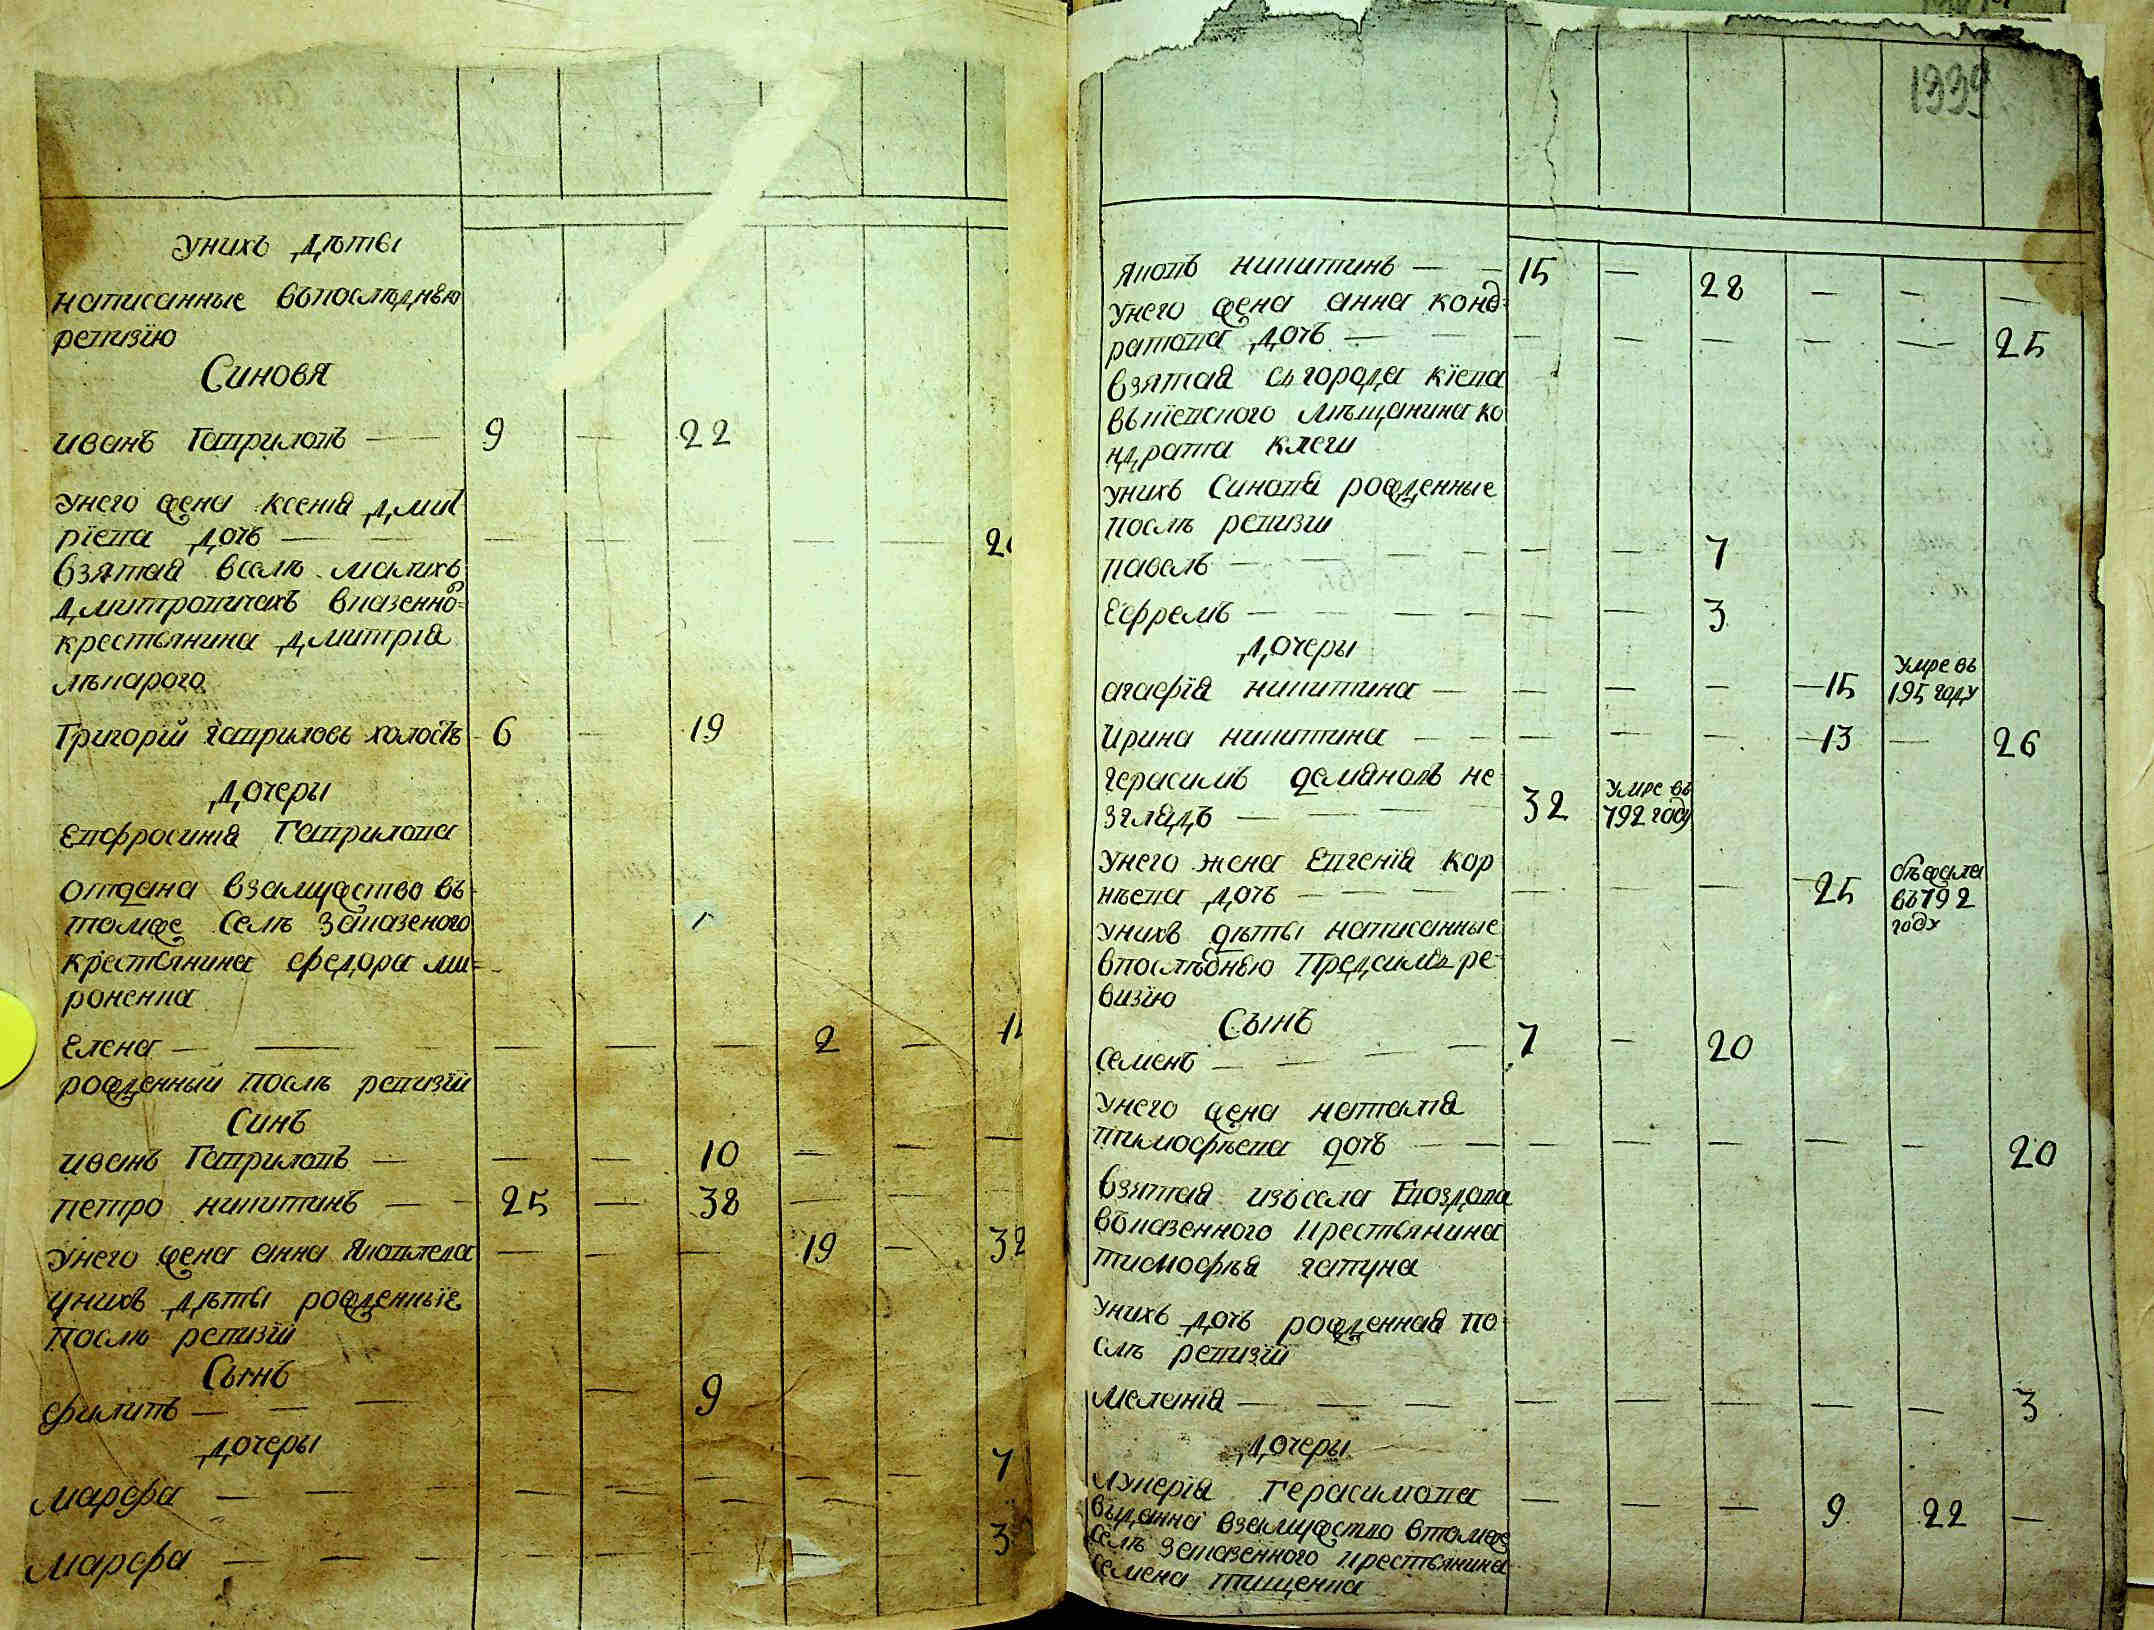 унихъ дѣти
написанные въпослѣднюю
ревизїю
Синовя
иванъ Гавриловъ — 9 — 22
унего жена ксенїя дмит
рїева дочь — — — — — —
взятая вселѣ малихъ
дмитровичахъ вказенно=
крестьянина дмитрїя
лѣкарого
Григорїй гавриловъ холостъ 6 — 19
дочеры
Евфросинїя Гаврилова
отдана взамужство въ
томже селѣ заказеного
крестьянина федора ми=
роненка
елена — — — — — 2 —
рожденный послѣ ревизїи
Синъ
иванъ Гавриловъ — — — 10 — — —
петро никитинъ — 25 — 38 — —
унего жена анна Яковлева — — — 19 — 32
унихъ дѣты рожденныїе
послѣ ревизїи
Сынъ
филипъ — — — 9
дочеры
марфа — — — — — — 7
марфа — — — — — — 3
1339
яковъ никитинъ — 15 — 28 — — —
унего жена анна конд=
ратова дочь — — — — — — 25
взятая съгорода кїева
вкїевского мѣщанина ко
ндрата клеги
унихъ Синовя рожденные
послѣ ревизїи
павелъ — — — 7
Еефремъ — — — 3
дочеры
агафїя никитина — — — — 15 Умре въ 795 году
Ирина никитина — — — — 13 — 26
герасимъ демяновъ не
зглядъ — — 32 Умре въ 792 году
унего жена Евгенїя кор
нѣева дочь — — — — 25 бѣжала въ 792 году
унихъ дѣты написанные
впослѣднюю Предсимъ ре
визїю
Сынъ
семенъ — — 7 — 20
унего жена наталїя
тимофѣева дочь — — — — — — 20
взятая изъсела Гвоздова
вьказенного крестьянина
тимофѣя гапуна
унихъ дочь рожденная по
слѣ ревизїи
меланїя — — — — — — 3
дочеры
лукерїя герасимова — — — 9 22 —
выданна взамужство втомже
селѣ заказенного крестьянина
семена тищенка